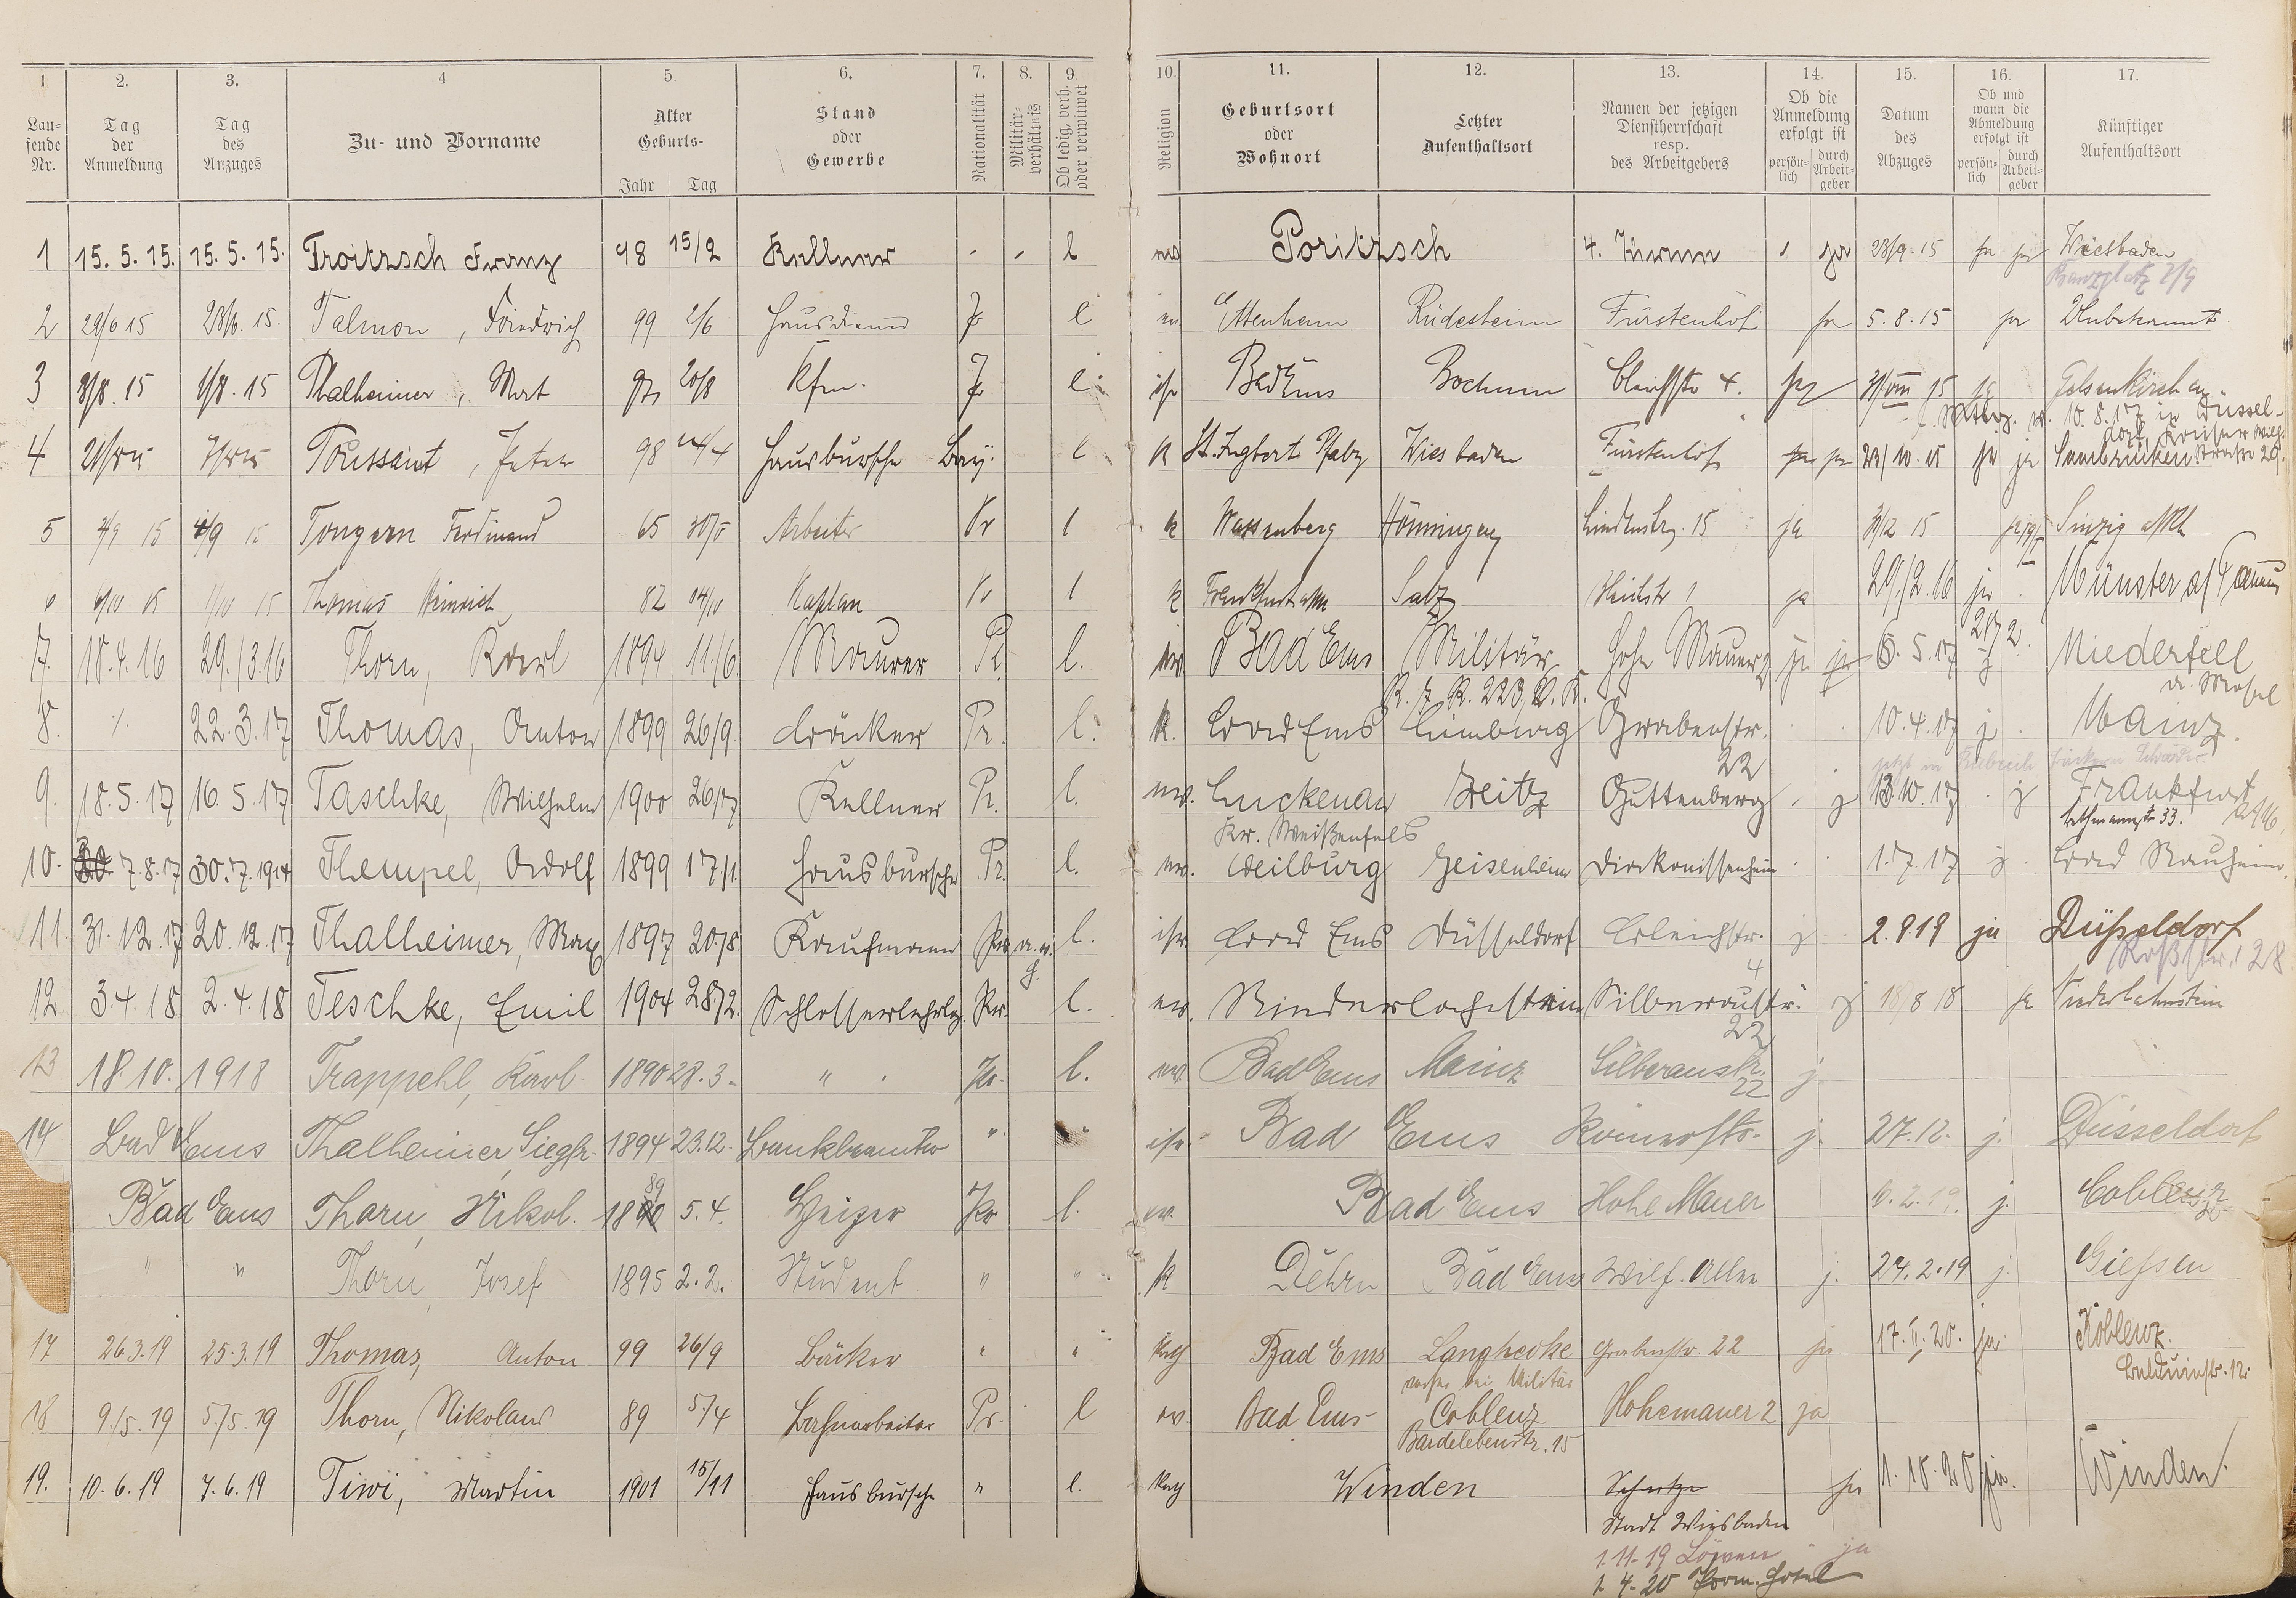 1 2. 3. 4 5. 6. 7. 8. 9. 10. 11. 12. 13. 14. 15. 16. 17.
Lau-
fende
Nr.
Tag
der
Anmeldung
Tag
des
Anzuges
Zu- und Vorname
Alter
Geburts-
Jahr Tag
Stand
oder
Gewerbe
Nationalität
Militär-
verhältnis
Ob ledig, verh.
oder verwitwet
Religion
Geburtsort
oder
Wohnort
Letzter
Aufenthaltsort
Namen der jetzigen
Dienstherrschaft
resp.
des Arbeitgebers
Ob die
Anmeldung
erfolgt ist
persön-
lich
durch
Arbeit-
geber
Datum
des
Abzuges
Ob und
wann die
Abmeldung
erfolgt ist
persön-
lich
durch
Arbeit-
geber
Künftiger
Aufenthaltsort
1 15. 5. 15. 15. 5. 15. Troitzsch Franz 98 15/2 Kellner - - l ev Poritzsch 4. Türme ja 28/9. 15 ja Wiesbaden
2 29/6 15 28/6. 15. Talmon, Friedrich 99 2/6 Hausdiener l ev. Ettenheim Rüdesheim Fürstenhof ja 5. 8. 15 ja Unbekannt
3 15 15 Thalheimer, 20/8 Kfm. l. isr Bad Ems Bochum Bleichstr 4. ja 15 ja Gelsenkirchen
10. 8. 17 in Düssel-
dorf,
4 Toussaint, Peter 98 Hausbursche Bay. l k St. Ingbert Pfalz Wiesbaden Fürstenhof ja 23/10. 15 ja ja Saarbrücken Straße 29.
5 15 4/9 15 Tongern Ferdinand 65 30/5 Arbeiter Pr l k Wassenberg Hönningen Lindenstr. 15 ja 15 Sinzig a/Rh
6 15 1/10 15 Thomas Heinrich 82 Kaplan Pr l k Frankfurt a/M Salz ja 29./2. 16 ja Münster a/Taunus
7. 18. 4. 16 29./3. 16 Thorn, Karl 1894 11./6. Maurer Pr. l. ev. Bad Ems Militär Hohe Mauer 2 ja 5. 17 j Niederfell
a. Mosel
R. I. R. 223,
8. 22. 3. 17 Thomas, Anton 1899 26/9. Bäcker Pr. l. k. Bad Ems Limburg Grabenstr.
22 10. 4. 17 j Mainz.
9. 18. 5. 17 16. 5. 17 Taschke, Wilhelm 1900 26/7 Kellner Pr. l. ev. Luckenau Zeitz Guttenberg j 13 10. 17 j Frankfurt
a/M.
Kr. Weißenfels
Bethmannstr 33.
10. 7. 8. 17 30. 7. 1914 Thempel, Adolf 1899 17./1. Hausbursche Pr. l. ev. Weilburg Geisenheim Diakonissenheim 1. 7. 17 j Bad Nauheim.
11. 31. 12. 17 20. 12. 17 Thalheimer, Max 1897 20./8. Kaufmann Pr. l. isr Bad Ems Düsseldorf Bleichstr.
4 j 2. 9 18 ja Düsseldorf
28
12. 3 4. 18 2. 4. 18 Teschke, Emil 1904 28./2. Schlosserlehrlg. Pr. l. ev. Niederlahnstein Silberaustr.
22 j 18/8 18 ja Niederlahnstein
13 18. 10. 1918 Trappehl, Karl 1890 28. 3. " Pr. l. ev. Bad Ems Mainz Silberaustr.
22 j
14 Bad Ems Thalheimer Siegfr. 1894 23.12. Bankbeamter " isr. Bad Ems Römerstr. j. 27. 12. j. Düsseldorf
Bad Ems Thorn, Nikol. 1889 5. 4. Heizer Pr l. ev. Bad Ems Hohe Mauer 2. 19. j. Coblenz
" " Thorn, Josef 1895 2. 2. Student " " k Dehrn Bad Ems Wilh. Allee j. 24. 2. 19 j. Giessen
17 26. 3. 19 25. 3. 19 Thomas, Anton 99 26/9 Bäcker " " Kath Bad Ems Langhecke Grabenstr. 22 ja 17. II. 20. ja Koblenz.
Balduinstr. 12.
vorher bei Militär
18 9./5. 19 5./5. 19 Thorn, Nikolaus 89 5/4 Bahnarbeiter Pr. l ev. Bad Ems Coblenz Hohemauer 2 ja
Bardelebenstr. 15
19. 10. 6. 19 7. 6. 19 Tiwi, Martin 1901 15/11 Hausbursche " l. Kath Winden ja 1. 10. 20 ja. Winden.
Stadt Wiesbaden
1. 11. 19 Löwen ja
1. 4. 20 Hotel